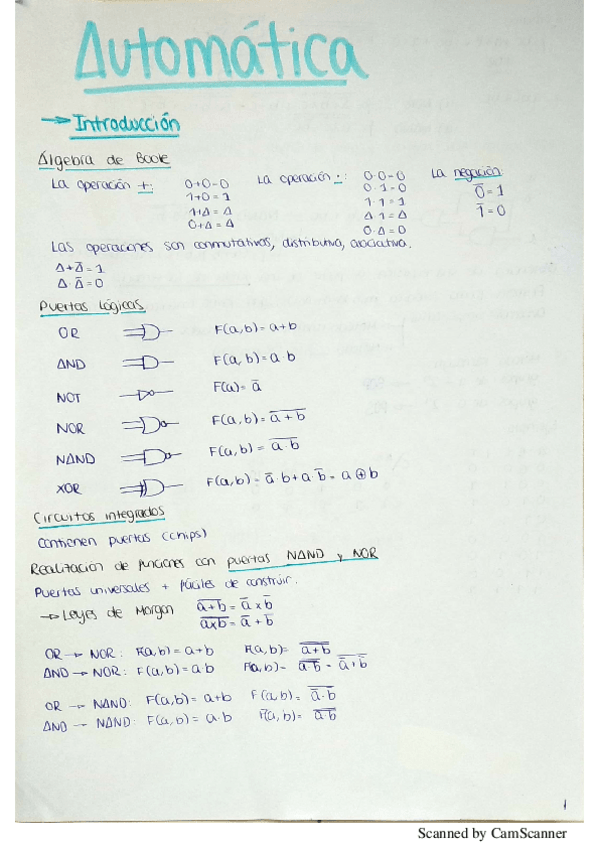 Automática
→ Introducción
Álgebra de Boole
La operación +: 0+0=0 La operación ·: 0·0=0 La negación:
1+0=1 0·1=0 0̅=1
1+A=A 1·1=1 1̅=0
0+A=A A·1=A
0·A=0
Las operaciones son conmutativas, distributiva, asociativa.
A+A̅=1
A·A̅=0
Puertas lógicas
OR F(a,b)=a+b
AND F(a,b)=a·b
NOT F(a)=a̅
NOR F(a,b)=\overline{a+b}
NAND F(a,b)=\overline{a·b}
XOR F(a,b)=a̅·b+a·b̅=a⊕b
Circuitos integrados
Contienen puertas (chips)
Realización de funciones con puertas NAND y NOR
Puertas universales + fáciles de construir.
→ Leyes de Morgan \overline{a+b}=a̅xb̅
\overline{axb}=a̅+b̅
OR → NOR: F(a,b)=a+b F(a,b)=\overline{a+b}
AND → NOR: F(a,b)=a·b F(a,b)=
OR → NAND: F(a,b)=a+b F(a,b)=\overline{a̅·b̅}
AND → NAND: F(a,b)=a·b F(a,b)=\overline{a·b}
1
Scanned by CamScanner